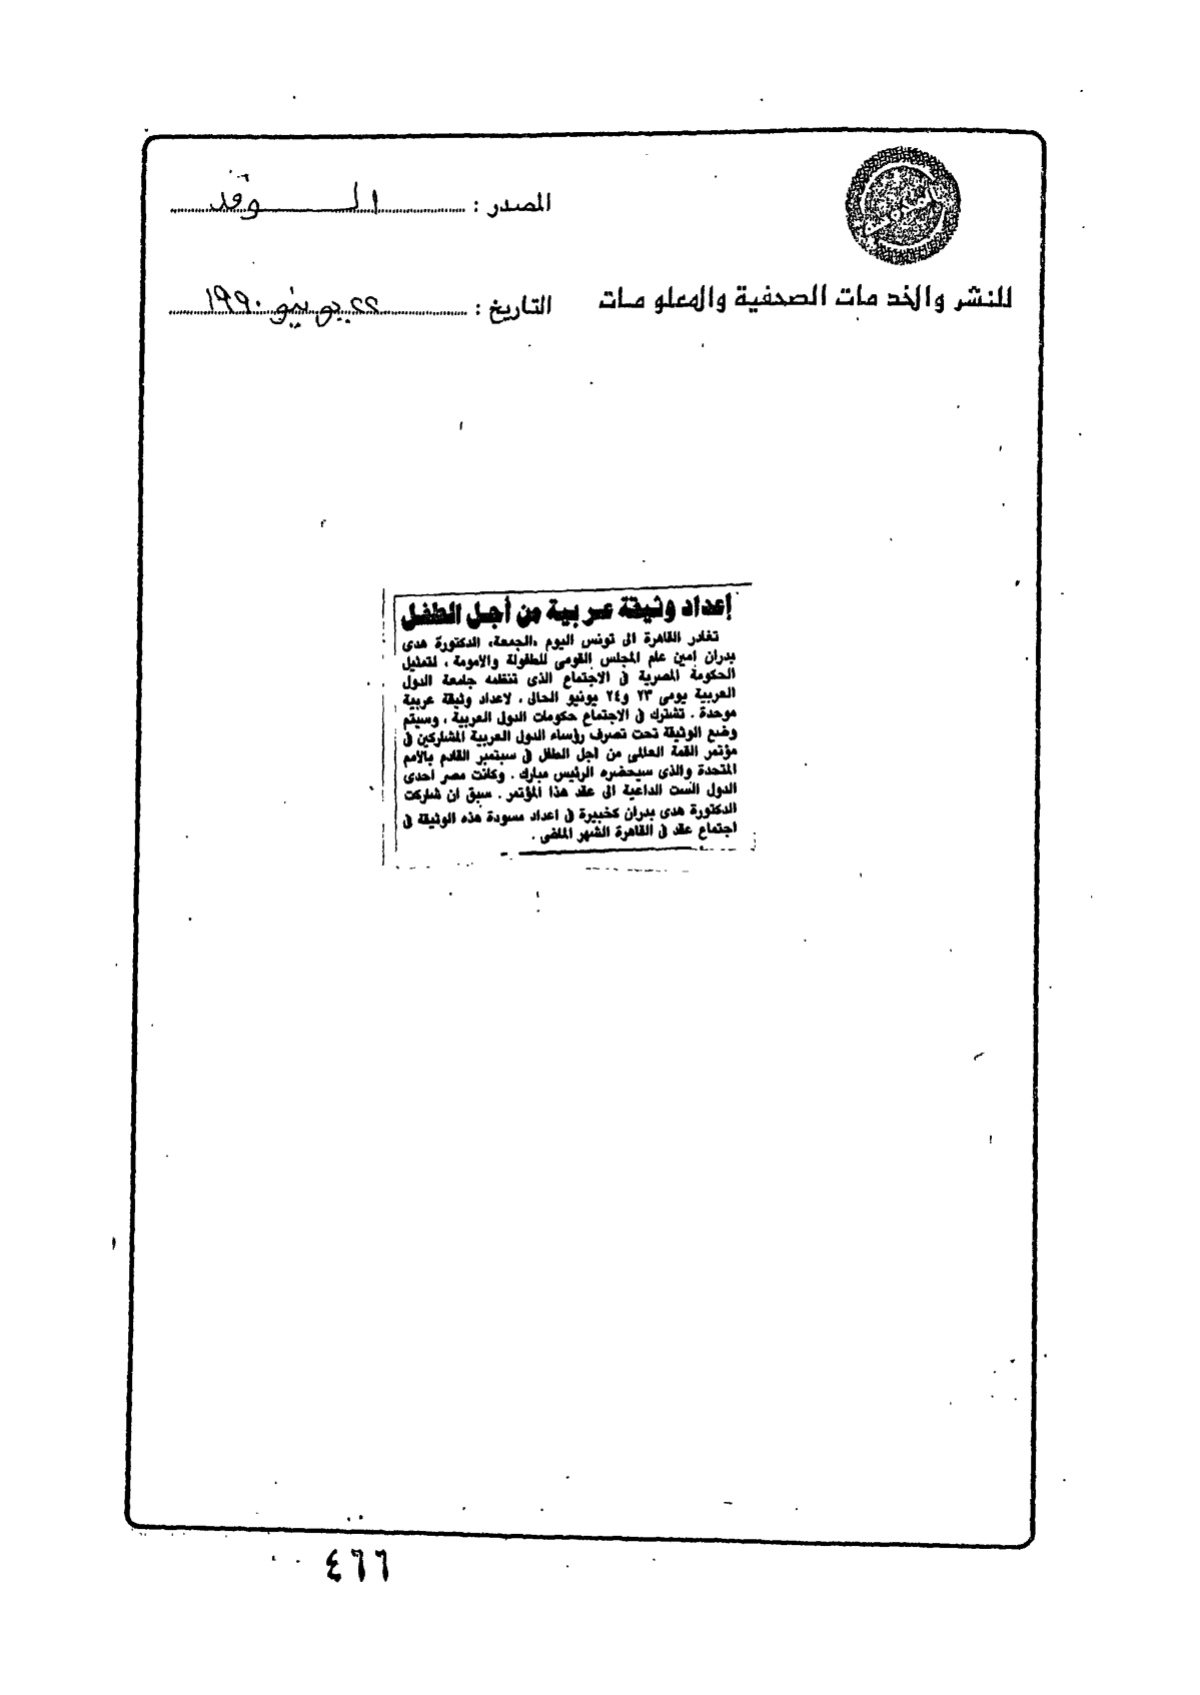 المصدر : الوفد
للنشر والخدمات الصحفية والمعلومات
التاريخ : ٢٢ يونيو ١٩٩٠
إعداد وثيقة عربية من أجل الطفل
تغادر القاهرة الى تونس اليوم «الجمعة» الدكتورة هدى
بدران امين عام المجلس القومى للطفولة والأمومة ، لتمثيل
الحكومة المصرية فى الاجتماع الذى تنظمه جامعة الدول
العربية يومى ٢٣ و٢٤ يونيو الحالى ، لاعداد وثيقة عربية
موحدة . تشترك فى الاجتماع حكومات الدول العربية ، وسيتم
وضع الوثيقة تحت تصرف رؤساء الدول العربية المشاركين فى
مؤتمر القمة العالمى من أجل الطفل فى سبتمبر القادم بالأمم
المتحدة والذى سيحضره الرئيس مبارك . وكانت مصر احدى
الدول الست الداعية الى عقد هذا المؤتمر . سبق ان شاركت
الدكتورة هدى بدران كخبيرة فى اعداد مسودة هذه الوثيقة فى
اجتماع عقد فى القاهرة الشهر الماضى .
٤٦٦